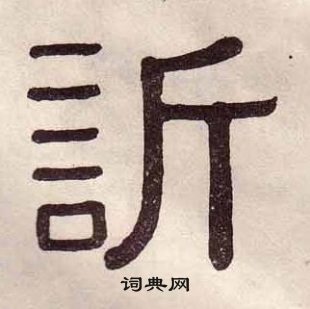 訢
词典网